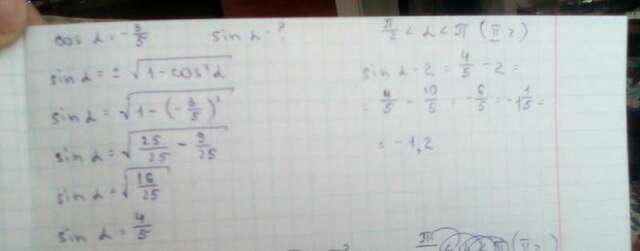 cos α = -3/5   sin α - ?   π/2 < α < π (II г)
sin α = ± √(1 - cos² α)
sin α = √(1 - (-3/5)²)
sin α = √(25/25 - 9/25)
sin α = √(16/25)
sin α = 4/5
sin α - 2 = 4/5 - 2 =
= 4/5 - 10/5 = -6/5 = -1 1/5 =
= -1,2